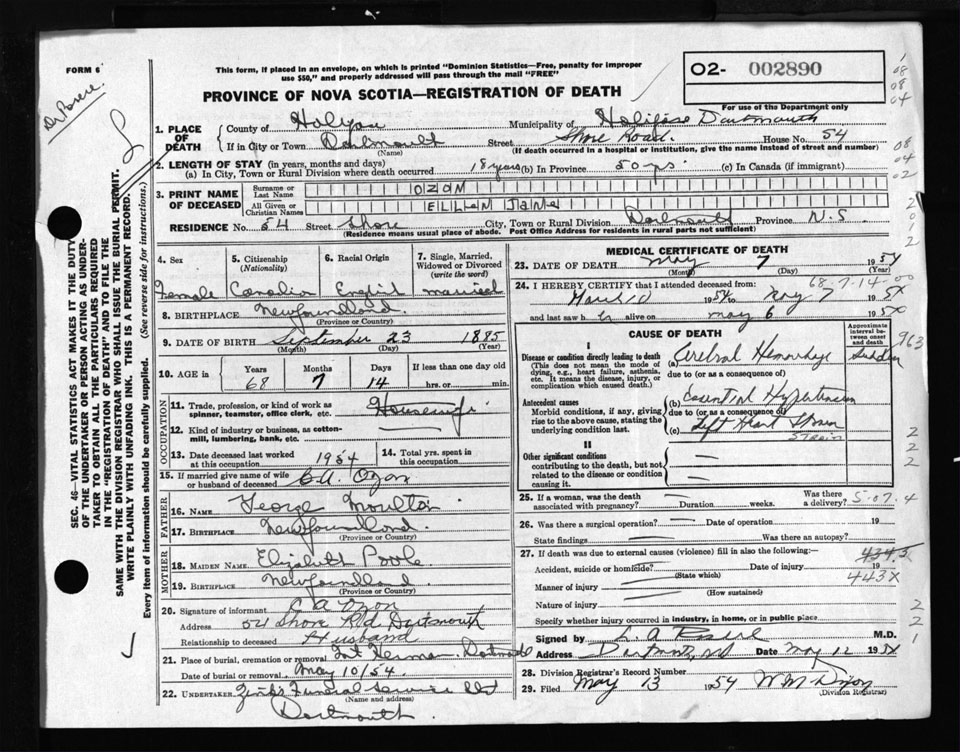 FORM 6
This form, if placed in an envelope, on which is printed "Dominion Statistics—Free, penalty for improper
use $50," and properly addressed will pass through the mail "FREE"
O2- 002890
PROVINCE OF NOVA SCOTIA—REGISTRATION OF DEATH
For use of the Department only
1. PLACE OF DEATH
County of Halifax Municipality of Halifax Dartmouth
If in City or Town Dartmouth Street Shore Road. House No. 54
(Name) (If death occurred in a hospital or institution, give the name instead of street and number)
2. LENGTH OF STAY (in years, months and days)
(a) In City, Town or Rural Division where death occurred 18 years (b) In Province 50 yrs. (c) In Canada (if immigrant)
3. PRINT NAME OF DECEASED
Surname or Last Name OZON
All Given or Christian Names ELLEN JANE
RESIDENCE No. 54 Street Shore City, Town or Rural Division Dartmouth Province N.S.
(Residence means usual place of abode. Post Office Address for residents in rural parts not sufficient)
SEC. 46—VITAL STATISTICS ACT MAKES IT THE DUTY
OF THE UNDERTAKER OR PERSON ACTING AS UNDER-
TAKER TO OBTAIN ALL THE PARTICULARS REQUIRED
IN THE "REGISTRATION OF DEATH" AND TO FILE THE
SAME WITH THE DIVISION REGISTRAR WHO SHALL ISSUE THE BURIAL PERMIT.
WRITE PLAINLY WITH UNFADING INK. THIS IS A PERMANENT RECORD.
Every item of information should be carefully supplied. (See reverse side for instructions.)
4. Sex
Female
5. Citizenship
(Nationality)
Canadian
6. Racial Origin
English
7. Single, Married,
Widowed or Divorced
(write the word)
married
8. BIRTHPLACE Newfoundland
(Province or Country)
9. DATE OF BIRTH September 23 1885
(Month) (Day) (Year)
10. AGE in
Years Months Days If less than one day old
68 7 14 hrs. or min.
OCCUPATION
11. Trade, profession, or kind of work as
spinner, teamster, office clerk, etc. Housewife
12. Kind of industry or business, as cotton-
mill, lumbering, bank, etc.
13. Date deceased last worked
at this occupation 1954
14. Total yrs. spent in
this occupation
15. If married give name of wife
or husband of deceased C.A. Ozon
FATHER
16. Name George Moulton
17. Birthplace Newfoundland
(Province or Country)
MOTHER
18. MAIDEN NAME Elizabeth Poole
19. BIRTHPLACE Newfoundland
(Province or Country)
20. Signature of informant C A Ozon
Address 54 Shore Rd Dartmouth
Relationship to deceased Husband
21. Place of burial, cremation or removal Dartmouth
Date of burial or removal May 10/54
22. UNDERTAKER Funeral Service Ltd
(Name and address)
Dartmouth.
MEDICAL CERTIFICATE OF DEATH
23. DATE OF DEATH May 7 1954
(Month) (Day) (Year)
68.7.14
24. I HEREBY CERTIFY that I attended deceased from:
March 1954 to May 7 1954
and last saw her alive on May 6 1954
CAUSE OF DEATH
Approximate
interval be-
tween onset
and death
I
Disease or condition directly leading to death
(This does not mean the mode of
dying, e.g., heart failure, asthenia,
etc. It means the disease, injury, or
complication which caused death.)
(a) Cerebral Hemorrhage Sudden
due to (or as a consequence of)
Antecedent causes
Morbid conditions, if any, giving
rise to the above cause, stating the
underlying condition last.
(b) Essential Hypertension
due to (or as a consequence of)
(c) Left Heart Strain
STRAIN
II
Other significant conditions
contributing to the death, but not
related to the disease or condition
causing it.
25. If a woman, was the death
associated with pregnancy? Duration weeks. Was there
a delivery?
26. Was there a surgical operation? Date of operation 19
State findings Was there an autopsy?
27. If death was due to external causes (violence) fill in also the following:—
Accident, suicide or homicide? Date of injury 19
(State which)
443X
Manner of injury
(How sustained)
Nature of injury
Specify whether injury occurred in industry, in home, or in public place
Signed by M.D.
Address Dartmouth, NS Date May 12 1954
28. Division Registrar's Record Number
29. Filed May 13 1954 W M Dixon
(Division Registrar)